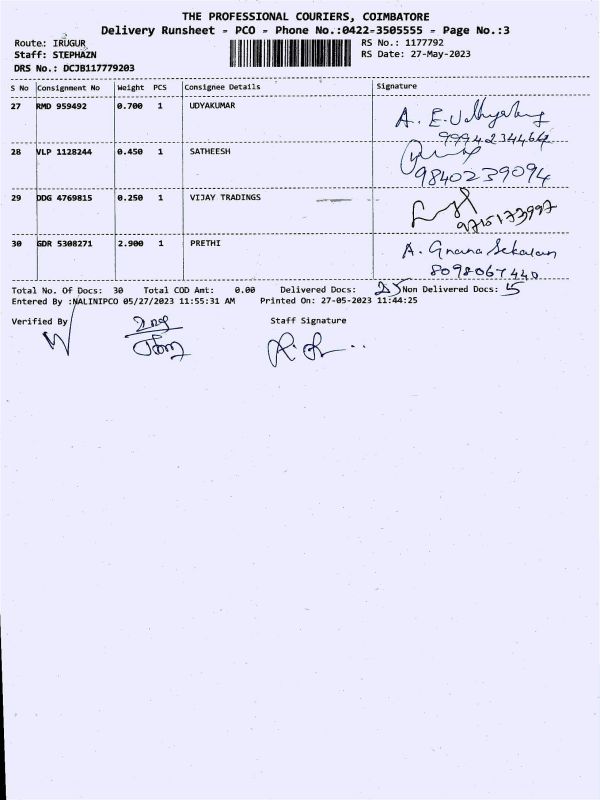 THE PROFESSIONAL COURIERS, COIMBATORE
Delivery Runsheet - PCO - Phone No.:0422-3505555 - Page No.:3
Route: IRUGUR
Staff: STEPHAZN
DRS No.: DCJB117779203
RS No.: 1177792
RS Date: 27-May-2023
S No Consignment No Weight PCS Consignee Details Signature
27 RMD 959492 0.700 1 UDYAKUMAR A. E. Udhyakumar
9994234464
28 VLP 1128244 0.450 1 SATHEESH
9840239094
29 DDG 4769815 0.250 1 VIJAY TRADINGS
9715173997
30 GDR 5308271 2.900 1 PRETHI A. Gnana Sekaran
8098067440
Total No. Of Docs: 30 Total COD Amt: 0.00 Delivered Docs: 25 Non Delivered Docs: 5
Entered By :NALINIPCO 05/27/2023 11:55:31 AM Printed On: 27-05-2023 11:44:25
Verified By Staff Signature